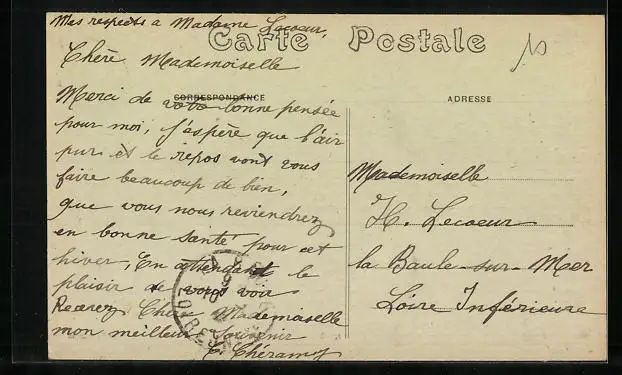 Mes respects a Madame Lecoeur,
Carte Postale
10
Chère Mademoiselle
CORRESPONDANCE
ADRESSE
Merci de votre bonne pensée
pour moi, j'espère que l'air
pur et le repos vont vous
faire beaucoup de bien,
que vous nous reviendrez
en bonne santé pour cet
hiver, En attendant le
plaisir de vous voir
Recevez Chère Mademoiselle
mon meilleur Souvenir
C. Chéramy
Mademoiselle
H. Lecoeur
la Baule-sur-Mer
Loire Inférieure